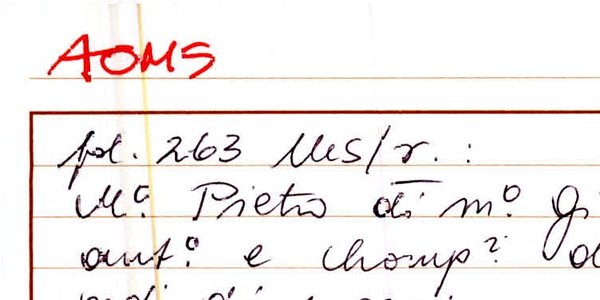 AOMS
fol. 263 MCS/r. :
M.º Pietro di m.º Gi
ant.º e chomp.ª d